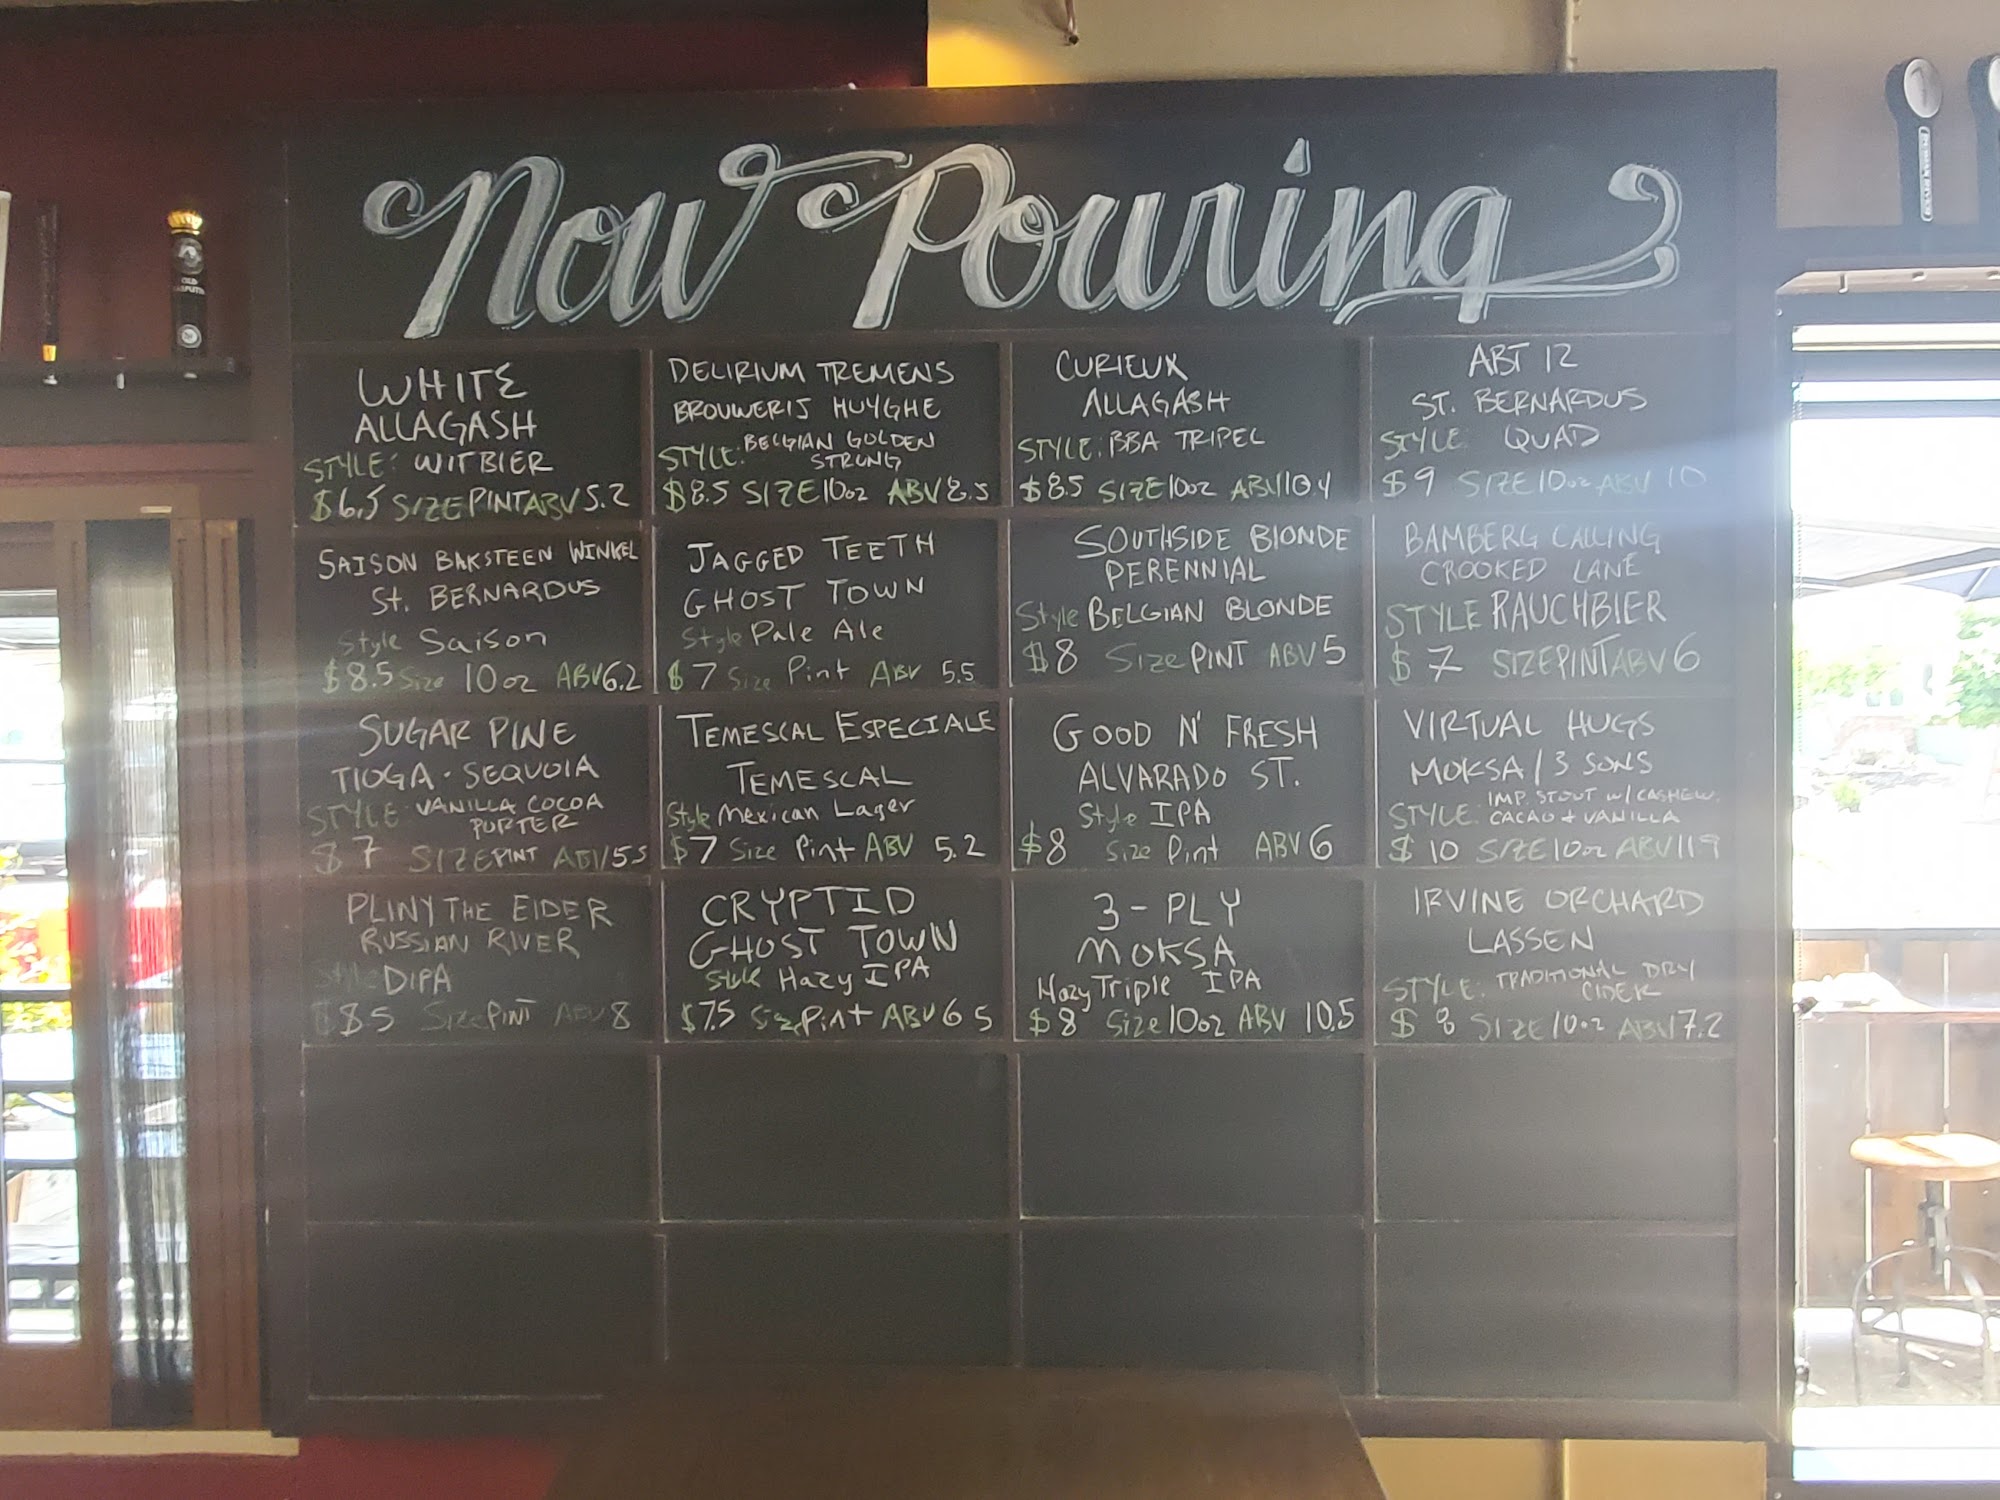 Now Pouring
WHITE
ALLAGASH
STYLE: WITBIER
$6.5 SIZE PINT ABV 5.2
DELIRIUM TREMENS
BROUWERIJ HUYGHE
STYLE: BELGIAN GOLDEN
STRONG
$8.5 SIZE 10oz ABV 8.5
CURIEUX
ALLAGASH
STYLE: BBA TRIPEL
$8.5 SIZE 10oz ABV 10.4
ABT 12
ST. BERNARDUS
STYLE: QUAD
$9 SIZE 10oz ABV 10
SAISON BAKSTEEN WINKEL
St. BERNARDUS
Style Saison
$8.5 Size 10oz ABV 6.2
JAGGED TEETH
GHOST TOWN
Style Pale Ale
$7 Size Pint ABV 5.5
SOUTHSIDE BLONDE
PERENNIAL
Style BELGIAN BLONDE
$8 Size PINT ABV 5
BAMBERG CALLING
CROOKED LANE
STYLE RAUCHBIER
$7 SIZE PINT ABV 6
SUGAR PINE
TIOGA-SEQUOIA
STYLE: VANILLA COCOA
PORTER
$7 SIZE PINT ABV 5.5
TEMESCAL ESPECIALE
TEMESCAL
Style Mexican Lager
$7 Size Pint ABV 5.2
GOOD N' FRESH
ALVARADO ST.
Style IPA
$8 Size Pint ABV 6
VIRTUAL HUGS
MOKSA/3 SONS
STYLE: IMP. STOUT w/ CASHEW,
CACAO + VANILLA
$10 SIZE 10oz ABV 11.9
PLINY THE ELDER
RUSSIAN RIVER
Style DIPA
$8.5 Size PINT ABV 8
CRYPTID
GHOST TOWN
Style Hazy IPA
$7.5 Size Pint ABV 6.5
3-PLY
MOKSA
Hazy Triple IPA
$8 Size 10oz ABV 10.5
IRVINE ORCHARD
LASSEN
STYLE: TRADITIONAL DRY
CIDER
$8 SIZE 10oz ABV 7.2
OLD